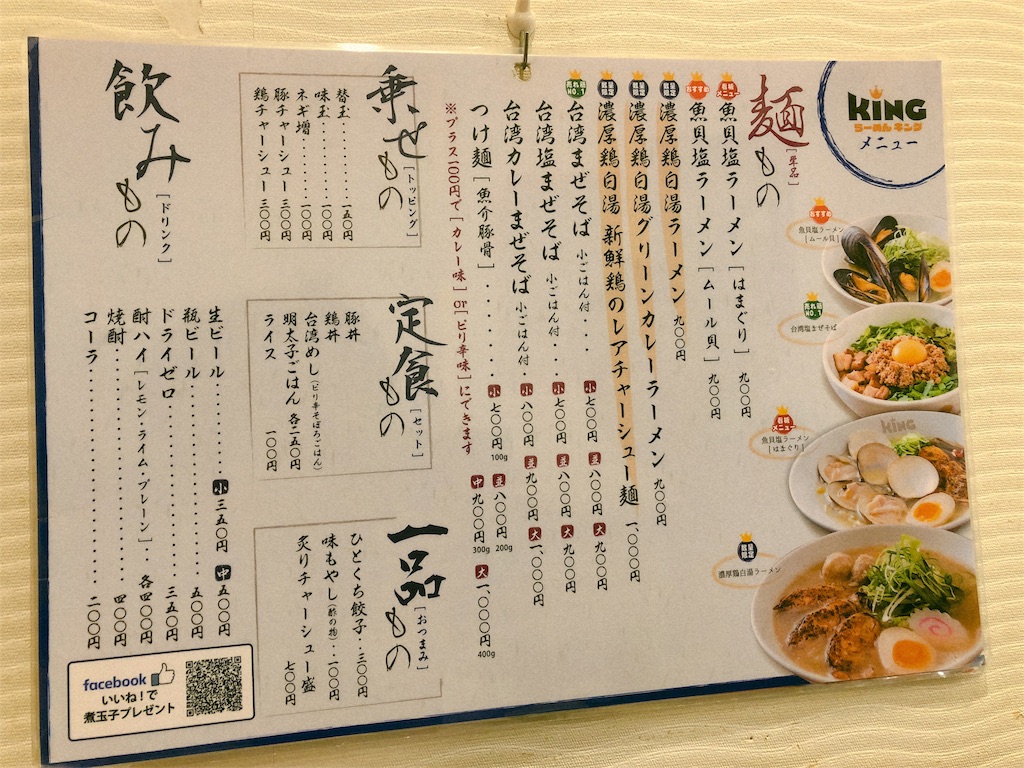 KING
らーめん キング
メニュー
麺もの
[単品]
看板メニュー
魚貝塩ラーメン [はまぐり] 九〇〇円
おすすめ
魚貝塩ラーメン [ムール貝] 九〇〇円
数量限定
濃厚鶏白湯ラーメン 九〇〇円
数量限定
濃厚鶏白湯グリーンカレーラーメン 九〇〇円
数量限定
濃厚鶏白湯 新鮮鶏のレアチャーシュー麺 一、〇〇〇円
売れ筋NO.1
台湾まぜそば 小ごはん付・・ 小 七〇〇円 並 八〇〇円 大 九〇〇円
台湾塩まぜそば 小ごはん付・・ 小 七〇〇円 並 八〇〇円 大 九〇〇円
台湾カレーまぜそば 小ごはん付・ 小 八〇〇円 並 九〇〇円 大 一、〇〇〇円
つけ麺 [魚介豚骨]・・・・・ 小 七〇〇円 100g 並 八〇〇円 200g
中 九〇〇円 300g 大 一、〇〇〇円 400g
※プラス100円で[カレー味] or [ピリ辛味]にできます
おすすめ
魚貝塩ラーメン
[ムール貝]
売れ筋NO.1
台湾塩まぜそば
看板メニュー
魚貝塩ラーメン
[はまぐり]
KING
数量限定
濃厚鶏白湯ラーメン
乗せもの
[トッピング]
替玉・・・・・・・・一五〇円
味玉・・・・・・・・一〇〇円
ネギ増・・・・・・一〇〇円
豚チャーシュー 三〇〇円
鶏チャーシュー 三〇〇円
定食もの
[セット]
豚丼
鶏丼
台湾めし (ピリ辛そぼろごはん)
明太子ごはん 各二五〇円
ライス 一〇〇円
一品もの
[おつまみ]
ひとくち餃子・・三〇〇円
味もやし (酢の物)・・一〇〇円
炙りチャーシュー盛 七〇〇円
飲みもの
[ドリンク]
生ビール・・・・・・・ 小 三五〇円 中 五〇〇円
瓶ビール・・・・・・・・・・・・・五〇〇円
ドライゼロ・・・・・・・・・・・・三五〇円
酎ハイ [レモン・ライム・プレーン]・・各四〇〇円
焼酎・・・・・・・・・・・・・・・四〇〇円
コーラ・・・・・・・・・・・・・・二〇〇円
facebook
いいね!で
煮玉子プレゼント